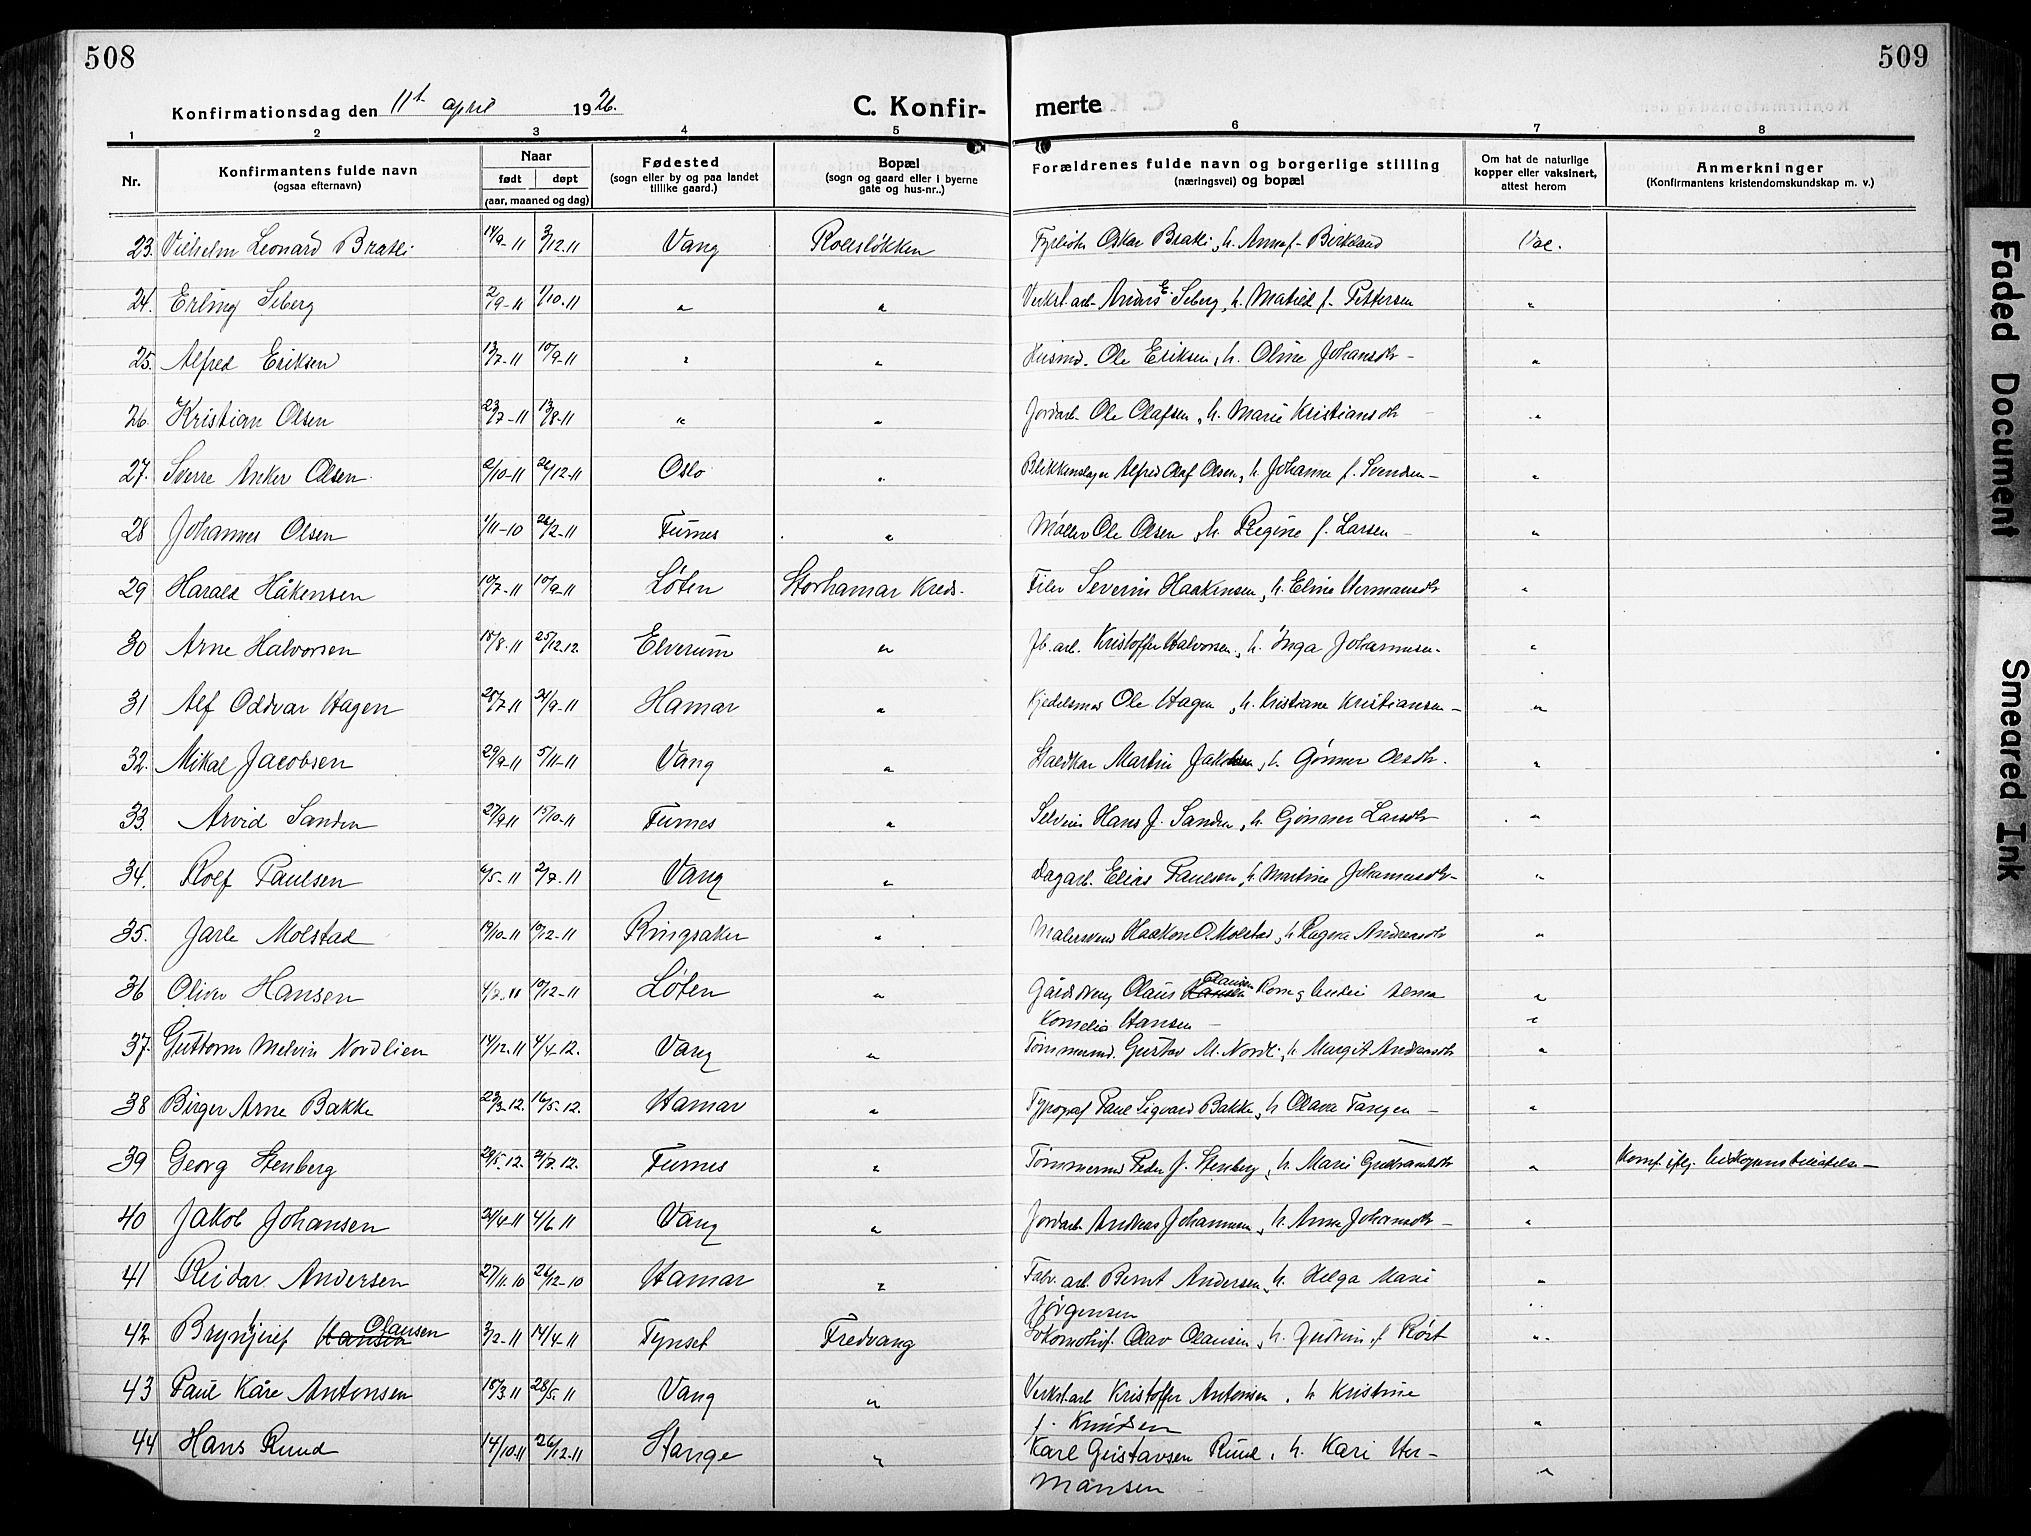 508
509
Konfirmationsdag den 11t april 1926.
C. Konfir-
merte
1 2 3 4 5 6 7 8
Nr.
Konfirmantens fulde navn
(ogsaa efternavn)
Naar
født døpt
(aar, maaned og dag)
Fødested
(sogn eller by og paa landet
tillike gaard.)
Bopæl
(sogn og gaard eller i byerne
gate og hus-nr.,)
Forældrenes fulde navn og borgerlige stilling
(næringsvei) og bopæl
Om hat de naturlige
kopper eller vaksinert,
attest herom
Anmerkninger
(Konfirmantens kristendomskundskap m. v.)
23. Vilhelm Leonard Bratli 14/9-11 3/12-11 Vang Rolsløkken Oskar Bratli, h. Anna f. Birkelund Vac.
24. Erling Seberg 2/9-11 1/10-11 " " Verkst.arb. Anders E. Seberg, h. Matild f. Pettersen "
25. Alfred Eriksen 13/7-11 10/9-11 " " Husmd. Ole Eriksen, h. Oline Johansdtr - "
26. Kristian Olsen 23/7-11 13/8-11 " " Jordarb. Ole Olafsen, h. Marie Kristiansdtr "
27. Sverre Anker Olsen 2/10-11 26/12-11 Oslo " Blikkenslager Alfred Olaf Olsen, h. Johanne f. - "
28 Johannes Olsen 1/11-10 26/2-11 Furnes " Møller Ole Olsen, h. Regine f. Larsen - "
29 Harald Håkensen 10/7-11 10/9-11 Løten Storhamar Kreds. Severin Haakensen, h. Eline Hermansdtr "
30 Arne Halvorsen 18/8-11 25/12-12 Elverum " Jb. arb. Kristoffer Halvorsen, h. Inga Johannesen. "
31 Alf Oddvar Hagen 28/7-11 24/9-11 Hamar " Kjedelsmed Ole Hagen, h. Kristiane Kristiansen - "
32. Mikal Jacobsen 29/9-11 5/11-11 Vang " Staldkar Martin Jakobsen, h. Gønner Olsdtr. "
33. Arvid Sanden 27/9-11 15/10-11 Furnes " Selveier Hans J. Sanden, h. Gjønner Larsdtr "
34. Rolf Paulsen 6/5-11 2/7-11 Vang " Dagarb. Elias Paulsen, h. Martine Johannesdtr - "
35. Jarle Molstad 19/10-11 10/12-11 Ringsaker " Malersvend Haakon O. Molstad, h. Andersdtr "
36 Oliver Hansen 4/7-11 10/12-11 Løten " Gårdsdreng Olaus Hansen Olausen
Kornelia Hansen - "
37. Guttorm Melvin Nordlien 14/12-11 4/4-12. Vang " Tømmermd. Gustav M. Nordli, h. Margit Andersdtr "
38 Birger Arne Bakke 23/3-12. 16/5-12. Hamar " Typograf Paul Sigvard Bakke, h. Olava Tangen - "
39 Georg Stenberg 29/5-12. 21/7-12. Furnes " Tømmermd Peder J. Stenberg, h. Marie " Konf. iflg. -
40 Jakob Johansen 24/4-11 4/6-11 Vang " Jordarb. Andreas Johannesen, h. Anne Johansdtr - "
41 Reidar Andersen 27/11-10 26/12-10 Hamar " Fabr. arb. Bernt Andersen, h. Helga Marie
Jørgensen "
42 Brynjulf Hansen Olausen 3/2-11 14/4-11 Tynset Fredvang Lokomotivf. Olav Olausen, h. Gudrun f. Røst "
43 Paul Kåre Antonsen 18/3-11 28/5-11 Vang " Verkst.arb Kristoffer Antonsen, h. Kristine
f. Knudsen "
44 Hans Ruud 14/10-11 26/12-11 Stange " Karl Gustavsen Ruud, h. Kari Her-
mansen "
Faded Document
Smeared Ink